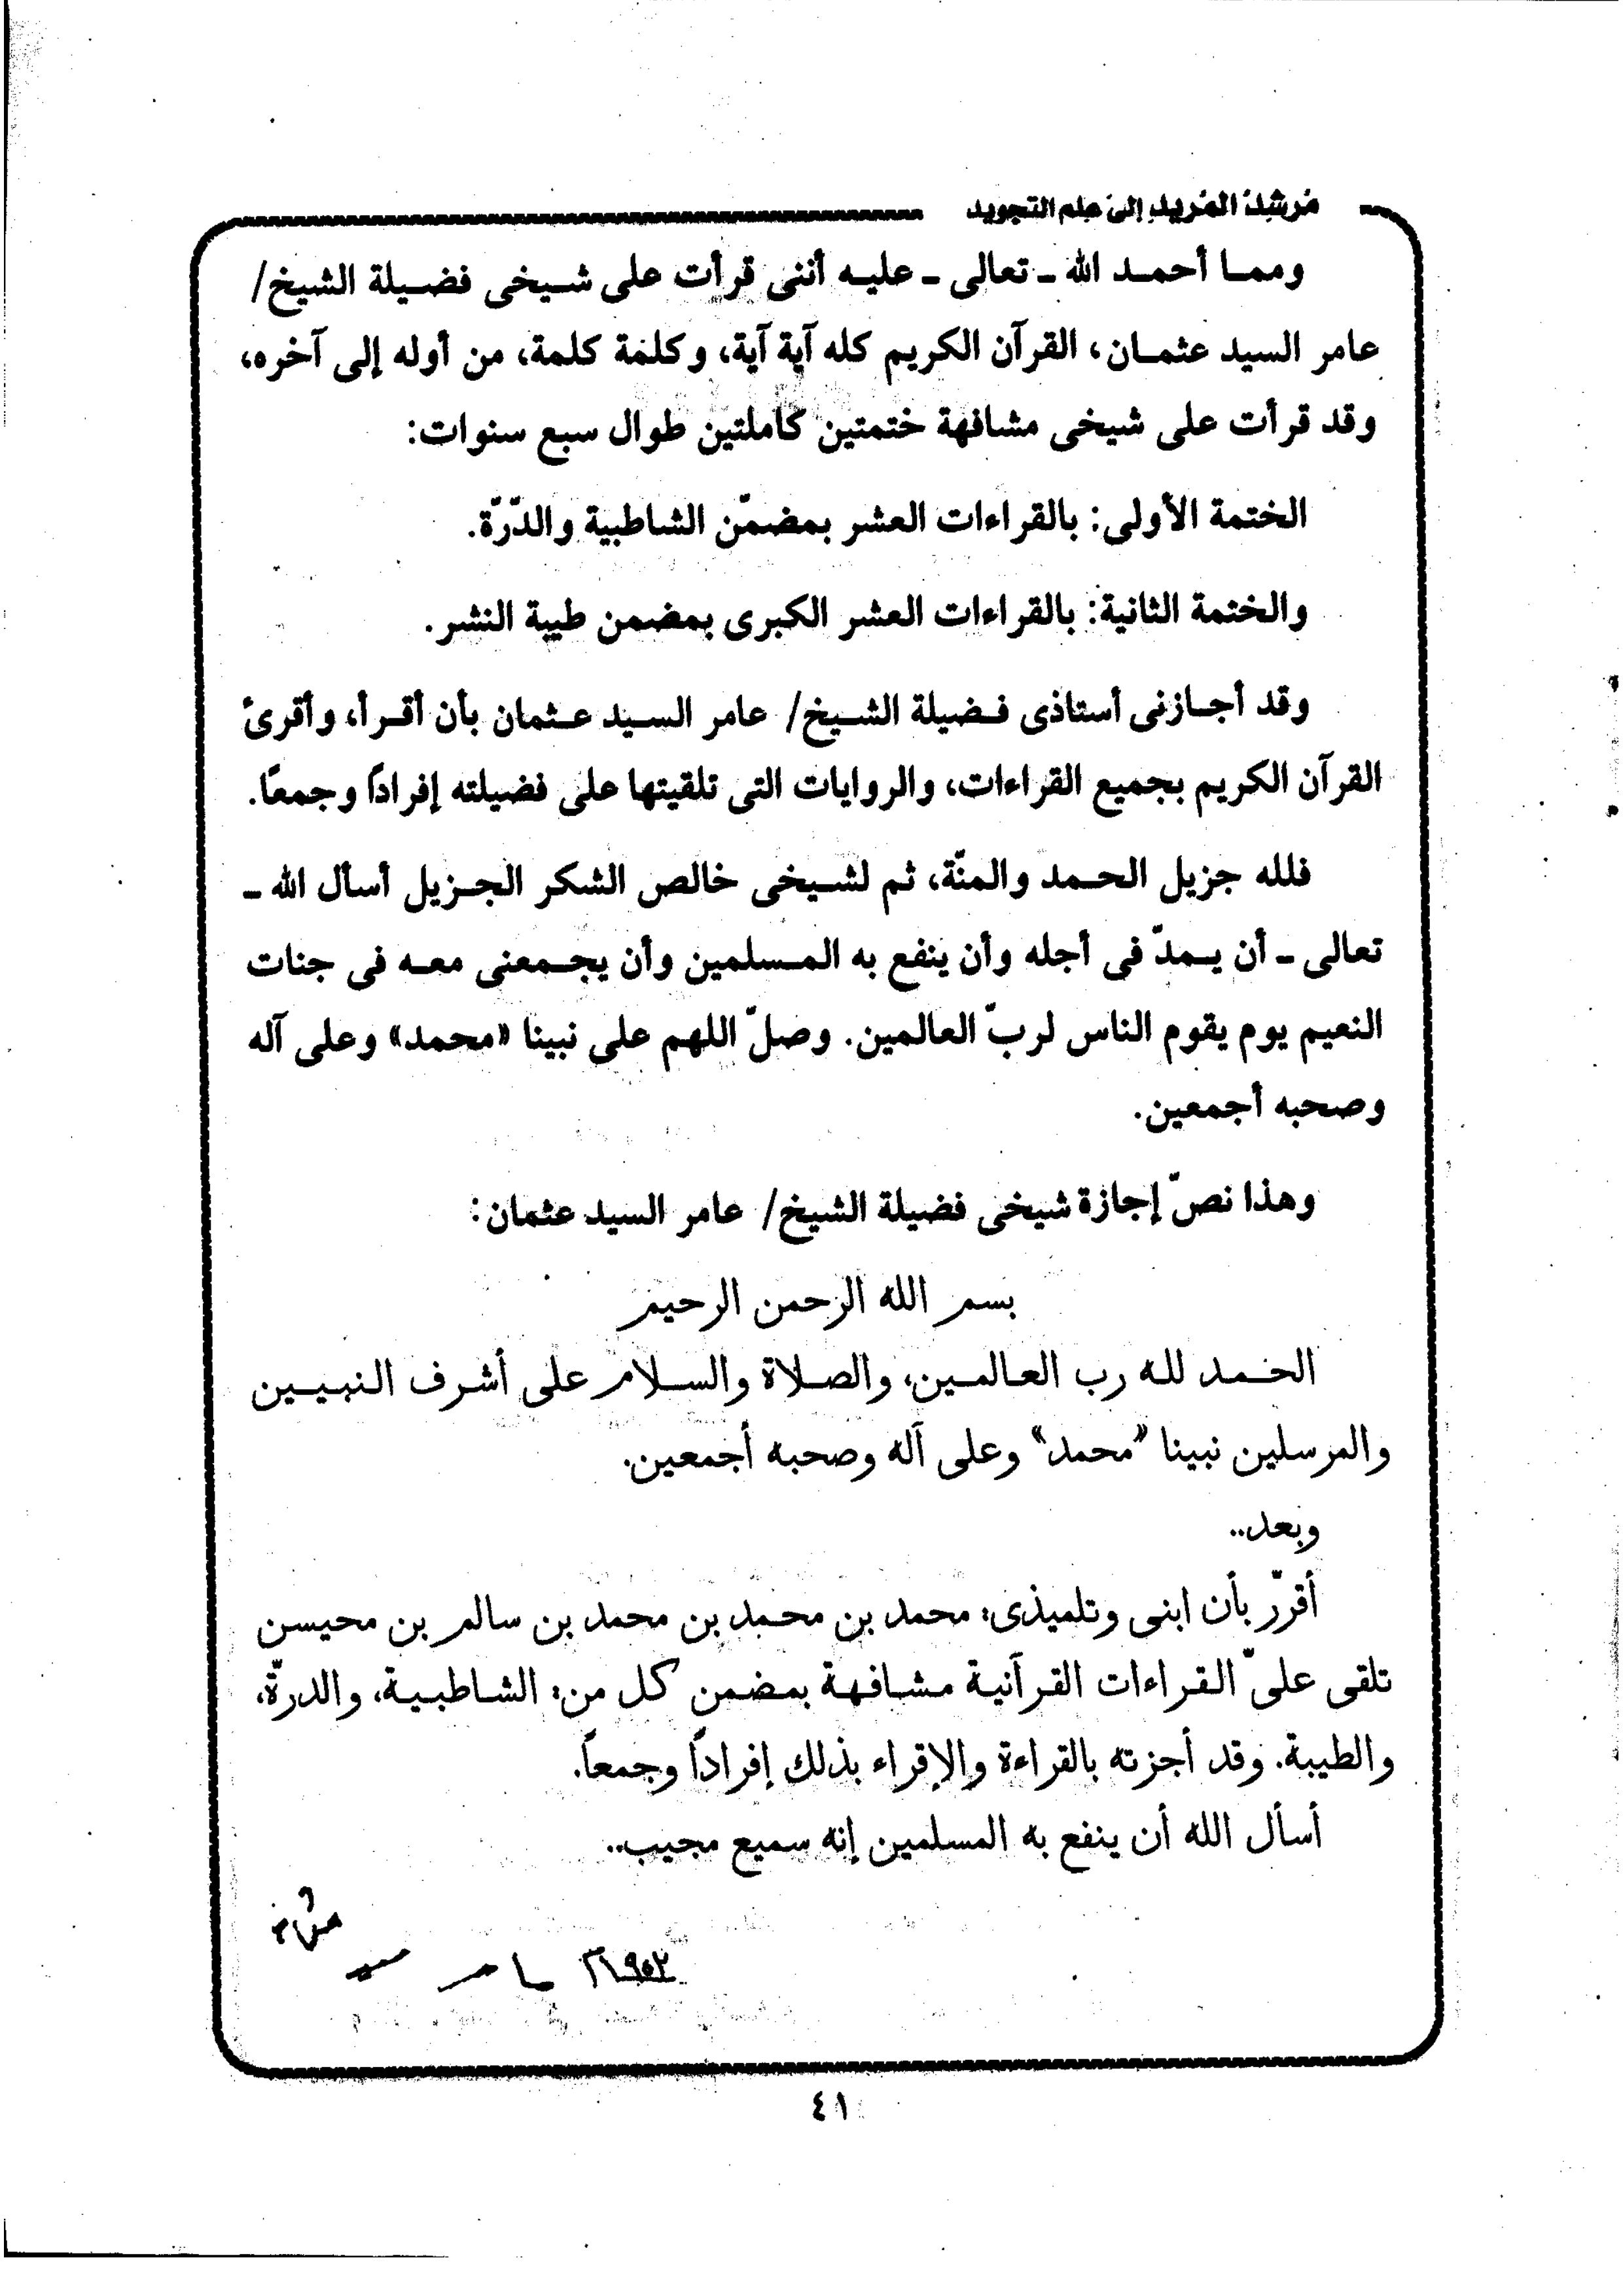 مُرشِدُ المُريدِ إلى علم التجويد
ومما أحمد الله ـ تعالى ـ عليه أننى قرأت على شيخى فضيلة الشيخ/
عامر السيد عثمان، القرآن الكريم كله آية آية، وكلمة كلمة، من أوله إلى آخره،
وقد قرأت على شيخى مشافهة ختمتين كاملتين طوال سبع سنوات:
الختمة الأولى: بالقراءات العشر بمضمّن الشاطبية والدّرّة.
والختمة الثانية: بالقراءات العشر الكبرى بمضمن طيبة النشر.
وقد أجازنى أستاذى فضيلة الشيخ/ عامر السيد عثمان بأن أقرأ، وأقرئ
القرآن الكريم بجميع القراءات، والروايات التى تلقيتها على فضيلته إفرادًا وجمعًا.
فلله جزيل الحمد والمنّة، ثم لشيخى خالص الشكر الجزيل أسأل الله ـ
تعالى ـ أن يمدّ فى أجله وأن ينفع به المسلمين وأن يجمعنى معه فى جنات
النعيم يوم يقوم الناس لربّ العالمين. وصلّ اللهم على نبينا «محمد» وعلى آله
وصحبه أجمعين.
وهذا نصّ إجازة شيخى فضيلة الشيخ/ عامر السيد عثمان:
بسم الله الرحمن الرحيم
الحمد لله رب العالمين، والصلاة والسلام على أشرف النبيين
والمرسلين نبينا «محمد» وعلى آله وصحبه أجمعين.
وبعد..
أقرّر بأن ابنى وتلميذى: محمد بن محمد بن محمد بن سالم بن محيسن
تلقى علىّ القراءات القرآنية مشافهة بمضمن كل من: الشاطبية، والدرّة،
والطيبة. وقد أجزته بالقراءة والإقراء بذلك إفرادًا وجمعًا.
أسأل الله أن ينفع به المسلمين إنه سميع مجيب..
عامر سيد عثمان
٤١